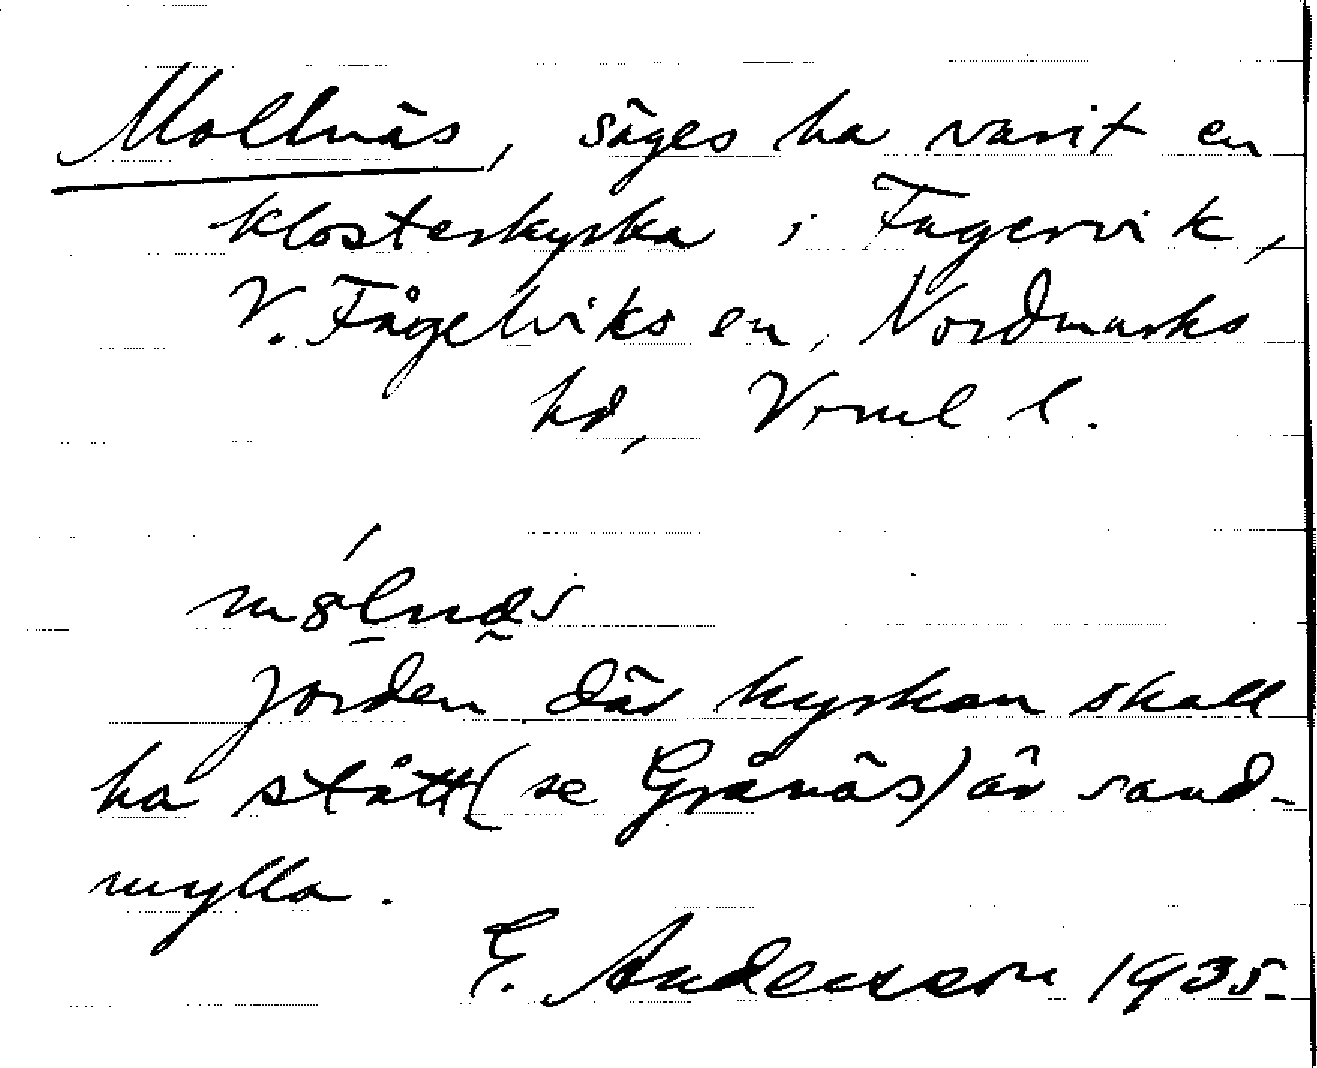 Mollnäs, säges ha varit en
klosterkyrka i Fagervik,
V. Fågelviks sn, Nordmarks
hd, Vrml l.
Jorden där kyrkan skall
ha stått (se Grånäs) är sand-
mylla.
E. Andersson 1935